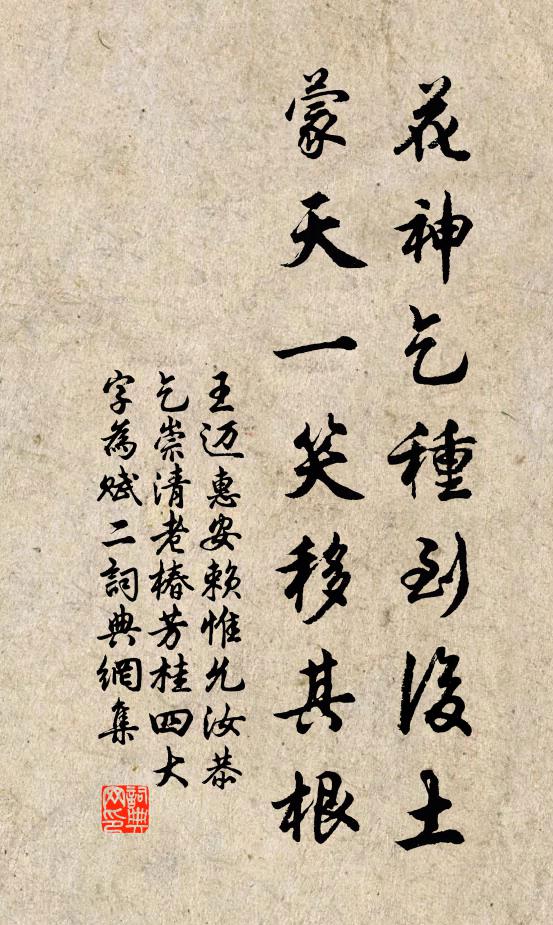 花神乞種到後土
蒙天一笑移其根
王迈惠安賴惟允汝恭
乞崇清老椿芳桂四大
字為賦二詞典網集
詞典
网印